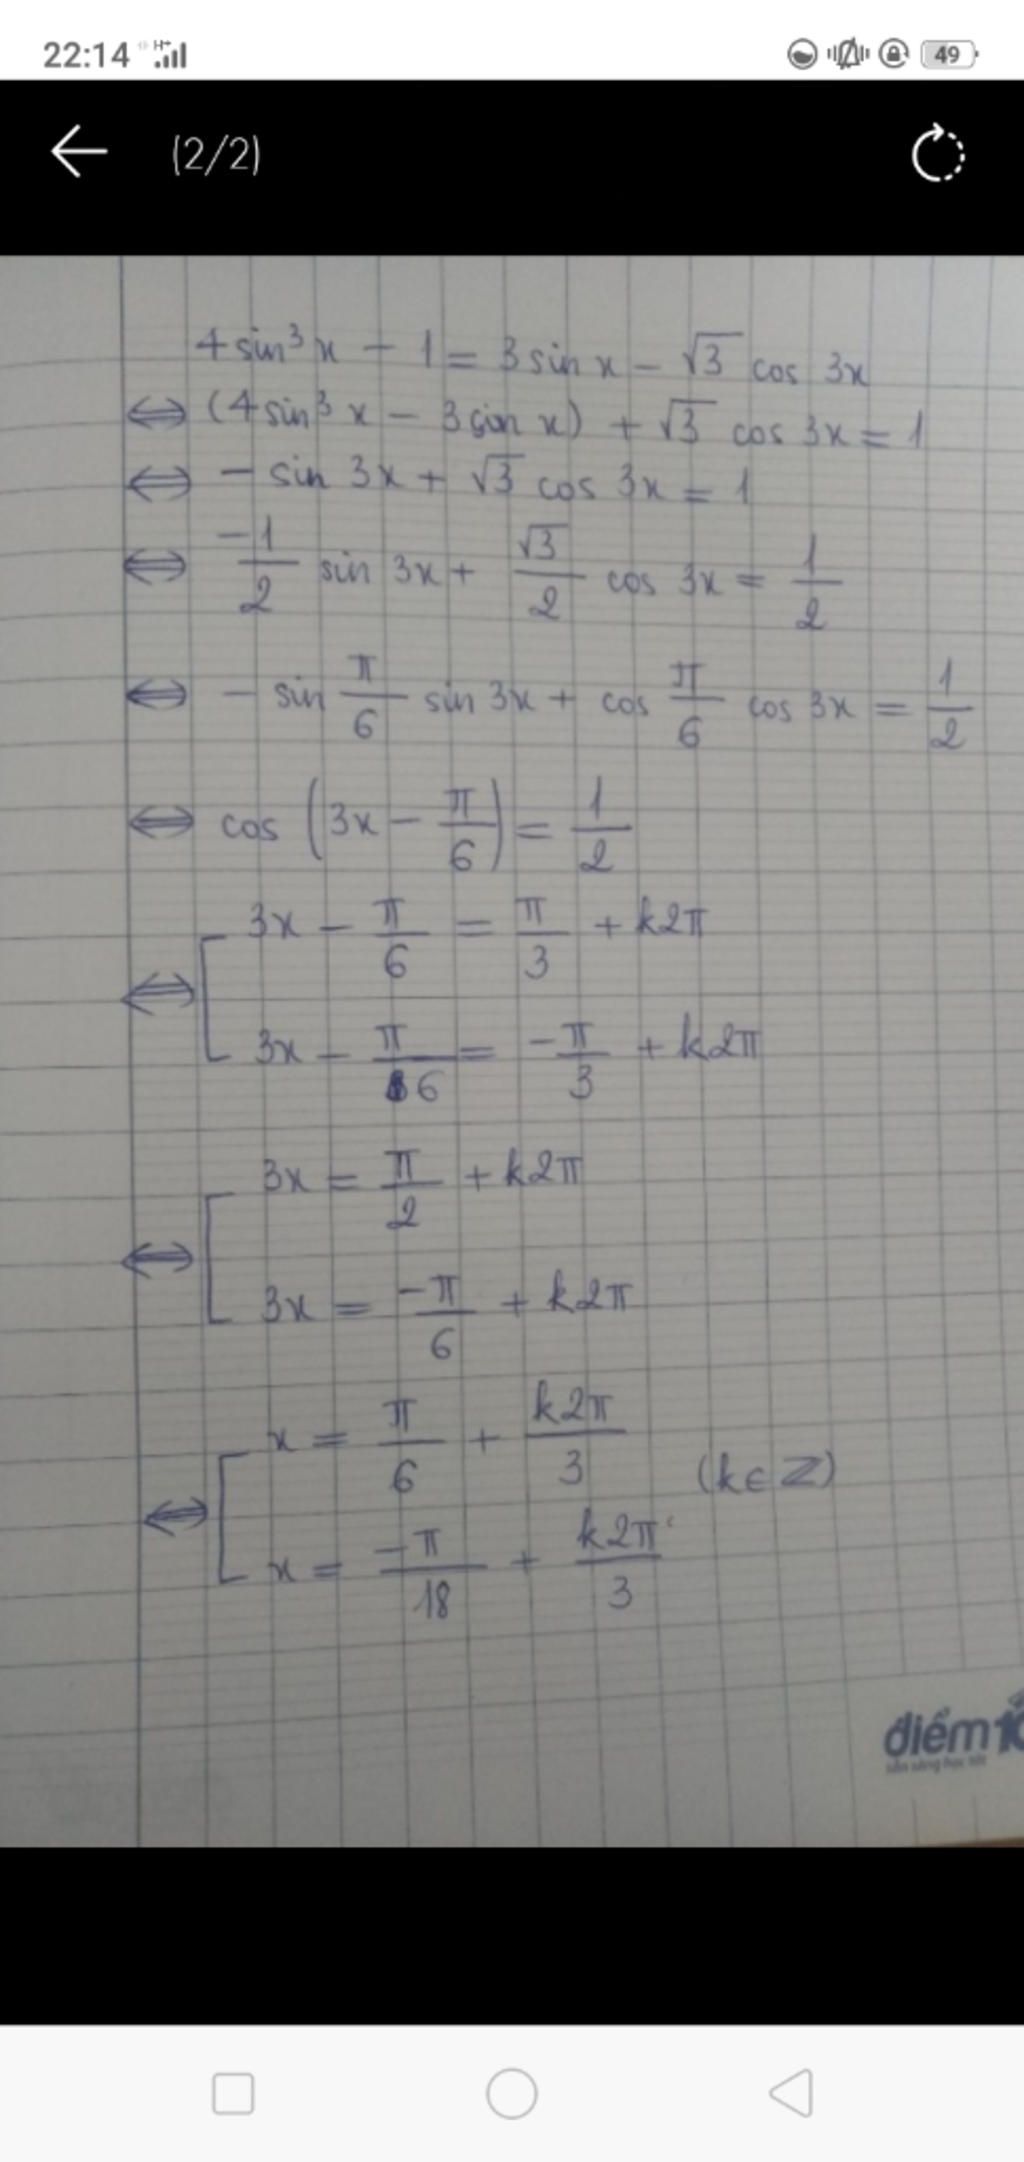 22:14 H+ 49
(2/2)
4 sin³ x − 1 = 3 sin x − √3 cos 3x
⇔ (4 sin³ x − 3 sin x) + √3 cos 3x = 1
⇔ − sin 3x + √3 cos 3x = 1
⇔ −1/2 sin 3x + √3/2 cos 3x = 1/2
⇔ − sin π/6 sin 3x + cos π/6 cos 3x = 1/2
⇔ cos (3x − π/6) = 1/2
⇔ [ 3x − π/6 = π/3 + k2π
3x − π/6 = −π/3 + k2π
⇔ [ 3x = π/2 + k2π
3x = −π/6 + k2π
⇔ [ x = π/6 + k2π/3 (k∈Z)
x = −π/18 + k2π/3
điểm10
sẵn sàng học tốt